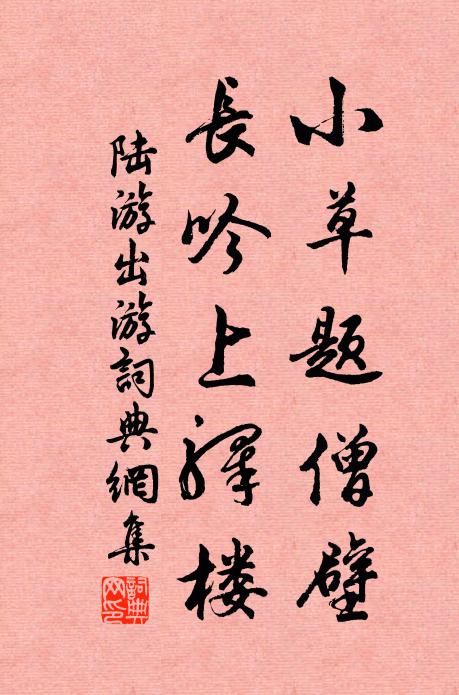 小草題僧壁
長吟上驛楼
陆游出游詞典網集
詞典網印